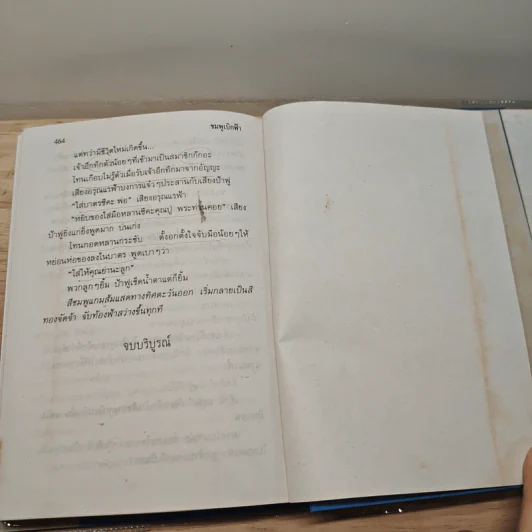 464
ชมพูเบิกฟ้า
แต่ทว่ามีชีวิตใหม่เกิดขึ้น...
เจ้าอึกทึกตัวน้อยๆที่เข้ามาเป็นสมาชิกก๊กอะ
โทนเกือบไม่รู้ตัวเมื่อรับเจ้าอึกทึกมาจากอัญญะ
เสียงอรุณแรฟ้าบงการแจ้วๆประสานกับเสียงป้าฟู
"ใส่บาตรซีคะ พ่อ" เสียงอรุณแรฟ้า
"หยิบของใส่มือหลานซีคะคุณปู่ พระท่านคอย" เสียง
ป้าฟูยิ่งแก่ยิ่งพูดมาก บ่นเก่ง
โทนกอดหลานกระชับ ตั้งอกตั้งใจจับมือน้อยๆให้
หย่อนห่อของลงในบาตร พูดเบาๆว่า
"ใส่ให้คุณย่านะลูก"
พวกลูกๆยิ้ม ป้าฟูเช็ดน้ำตาแต่ก็ยิ้ม
สีชมพูแกมส้มแสดทางทิศตะวันออก เริ่มกลายเป็นสี
ทองจัดจ้า จับท้องฟ้าสว่างขึ้นทุกที
จบบริบูรณ์